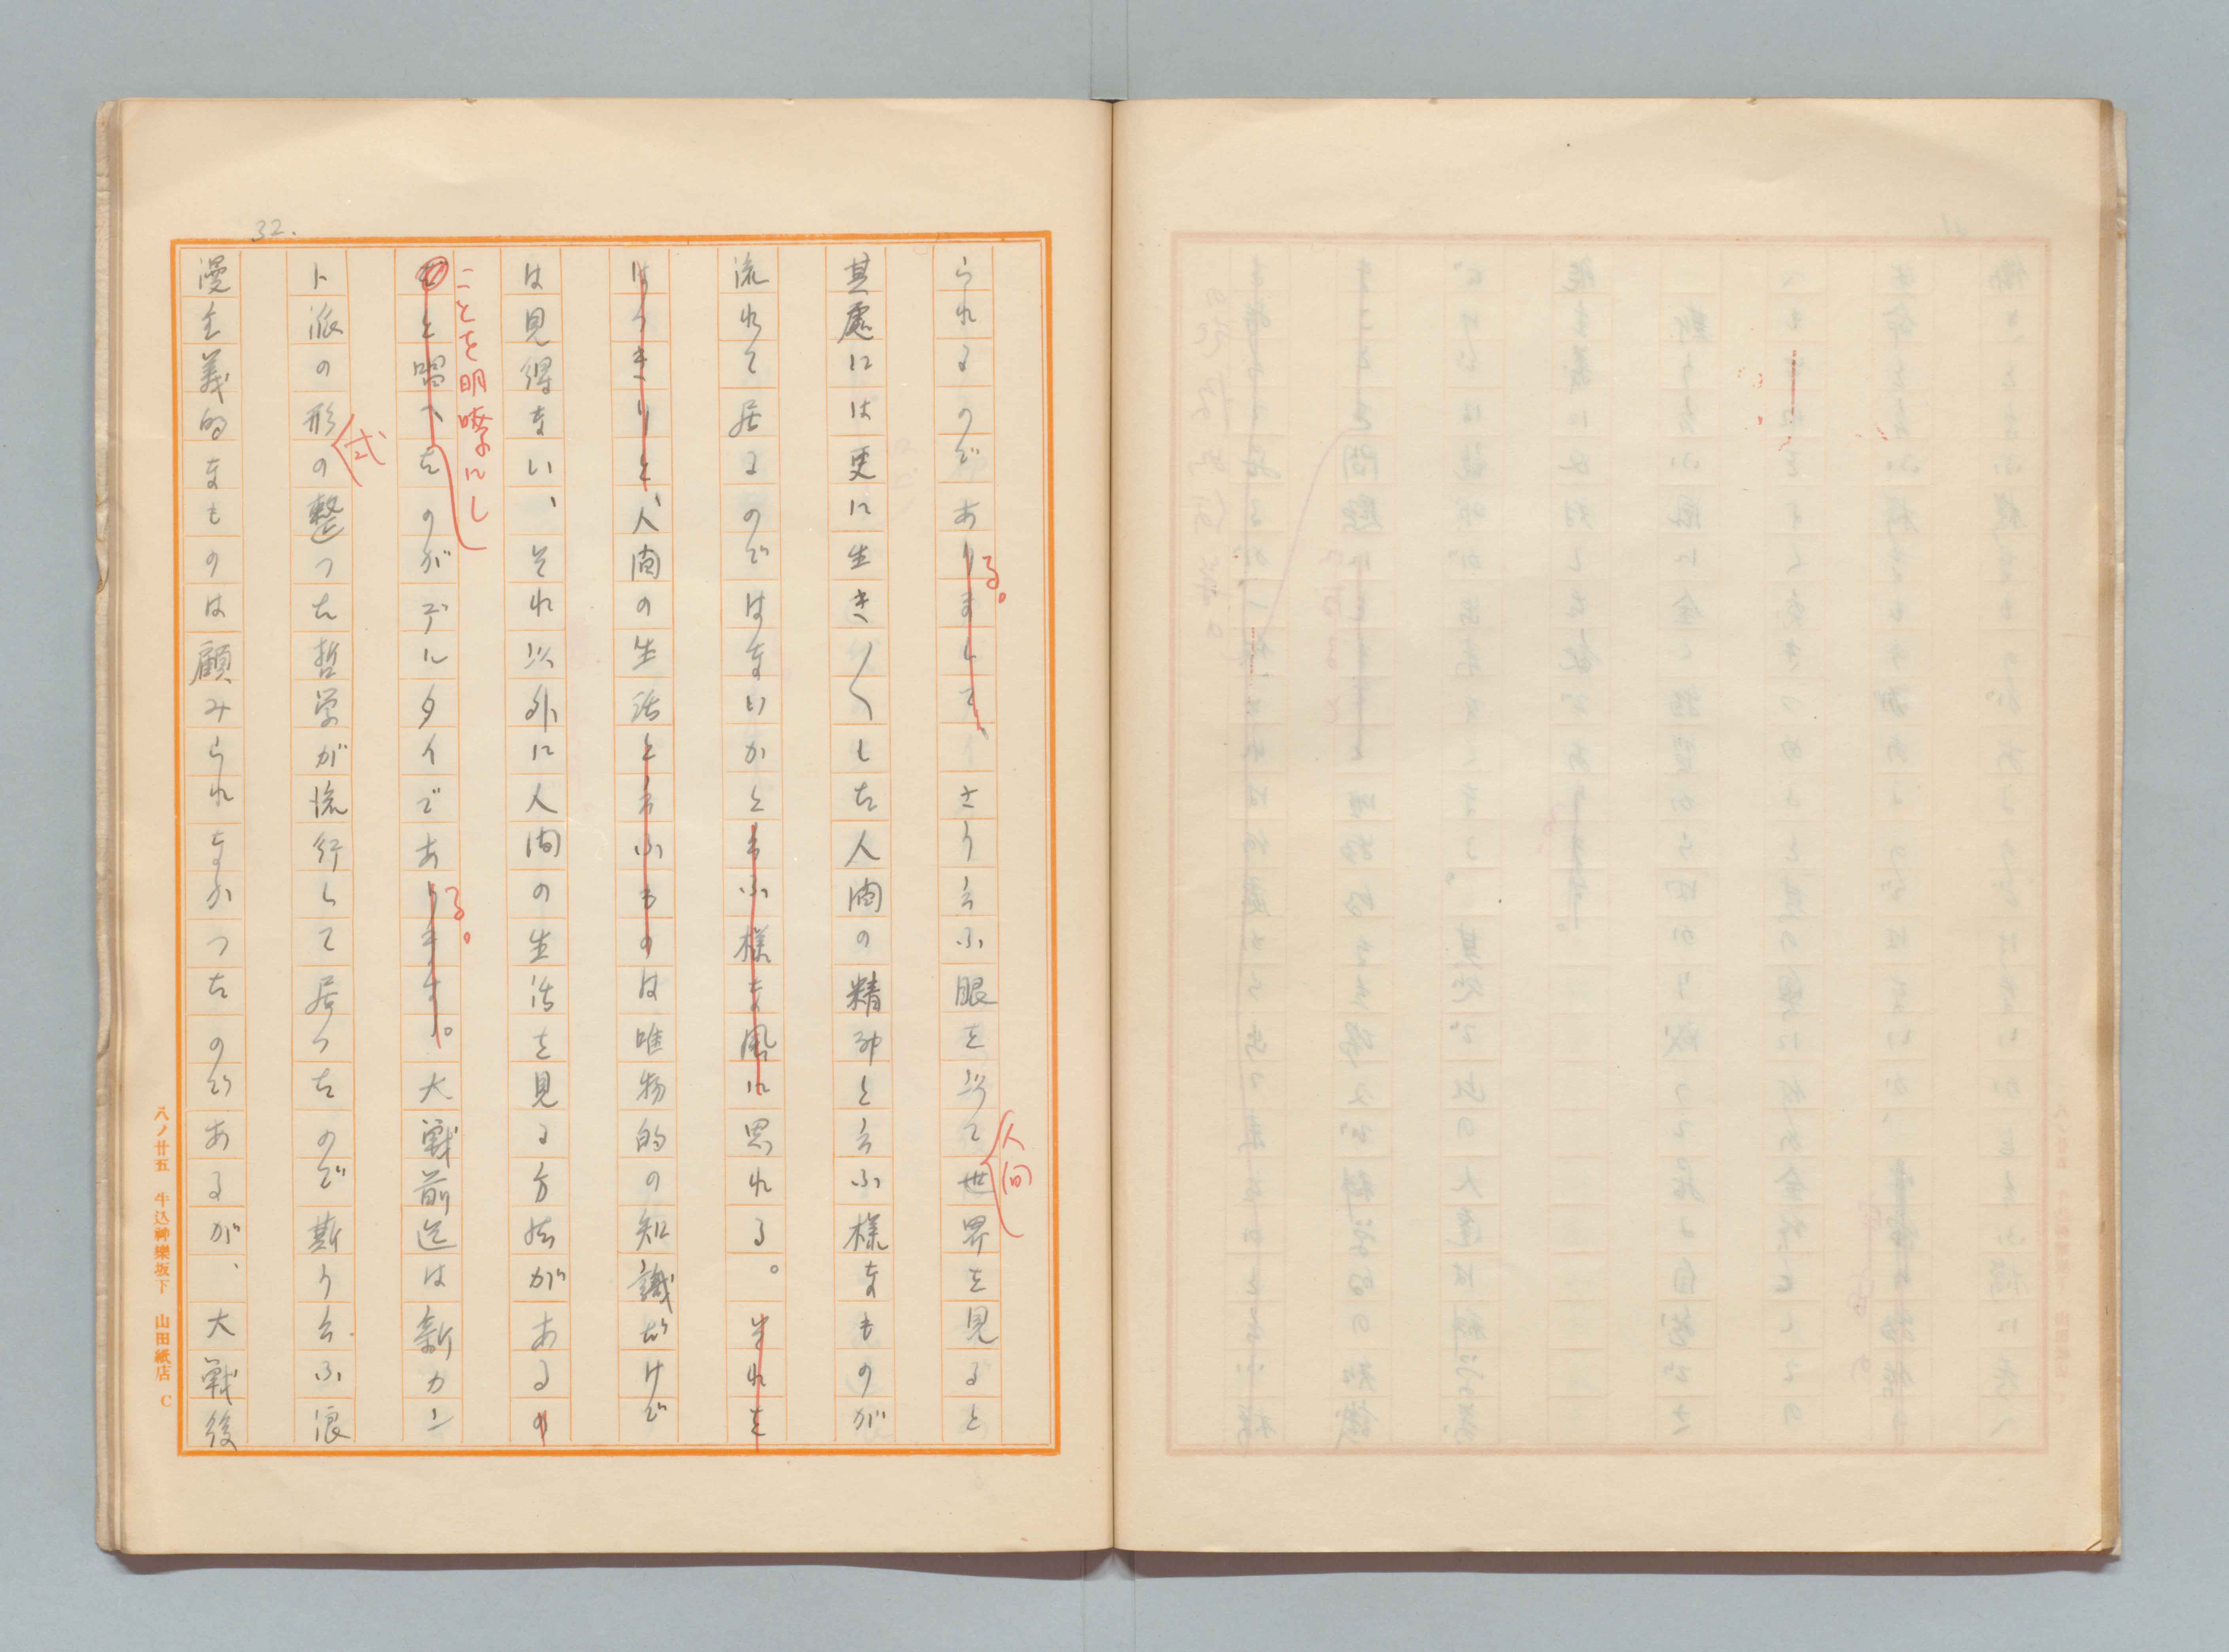 32.
られるのでありまして、さう云ふ眼を以て世界を見ると
る。
人間
其處には更に生き〱した人間の精神と云ふ様なものが
流れて居るのではないかと云ふ様な風に思れる。それを
はつきりと、人間の生活と云ふものは唯物的の知識だけで
は見得ない、それ以外に人間の生活を見る方法があるの
ことを明暸にし
だと唱へたのがデルタイであります。大戰前迄は新カン
る。
ト派の形の整つた哲学が流行して居つたので斯う云ふ浪
式
漫主義的なものは顧みられなかつたのであるが、大戰後
八ノ廿五 牛込神樂坂下 山田紙店 C